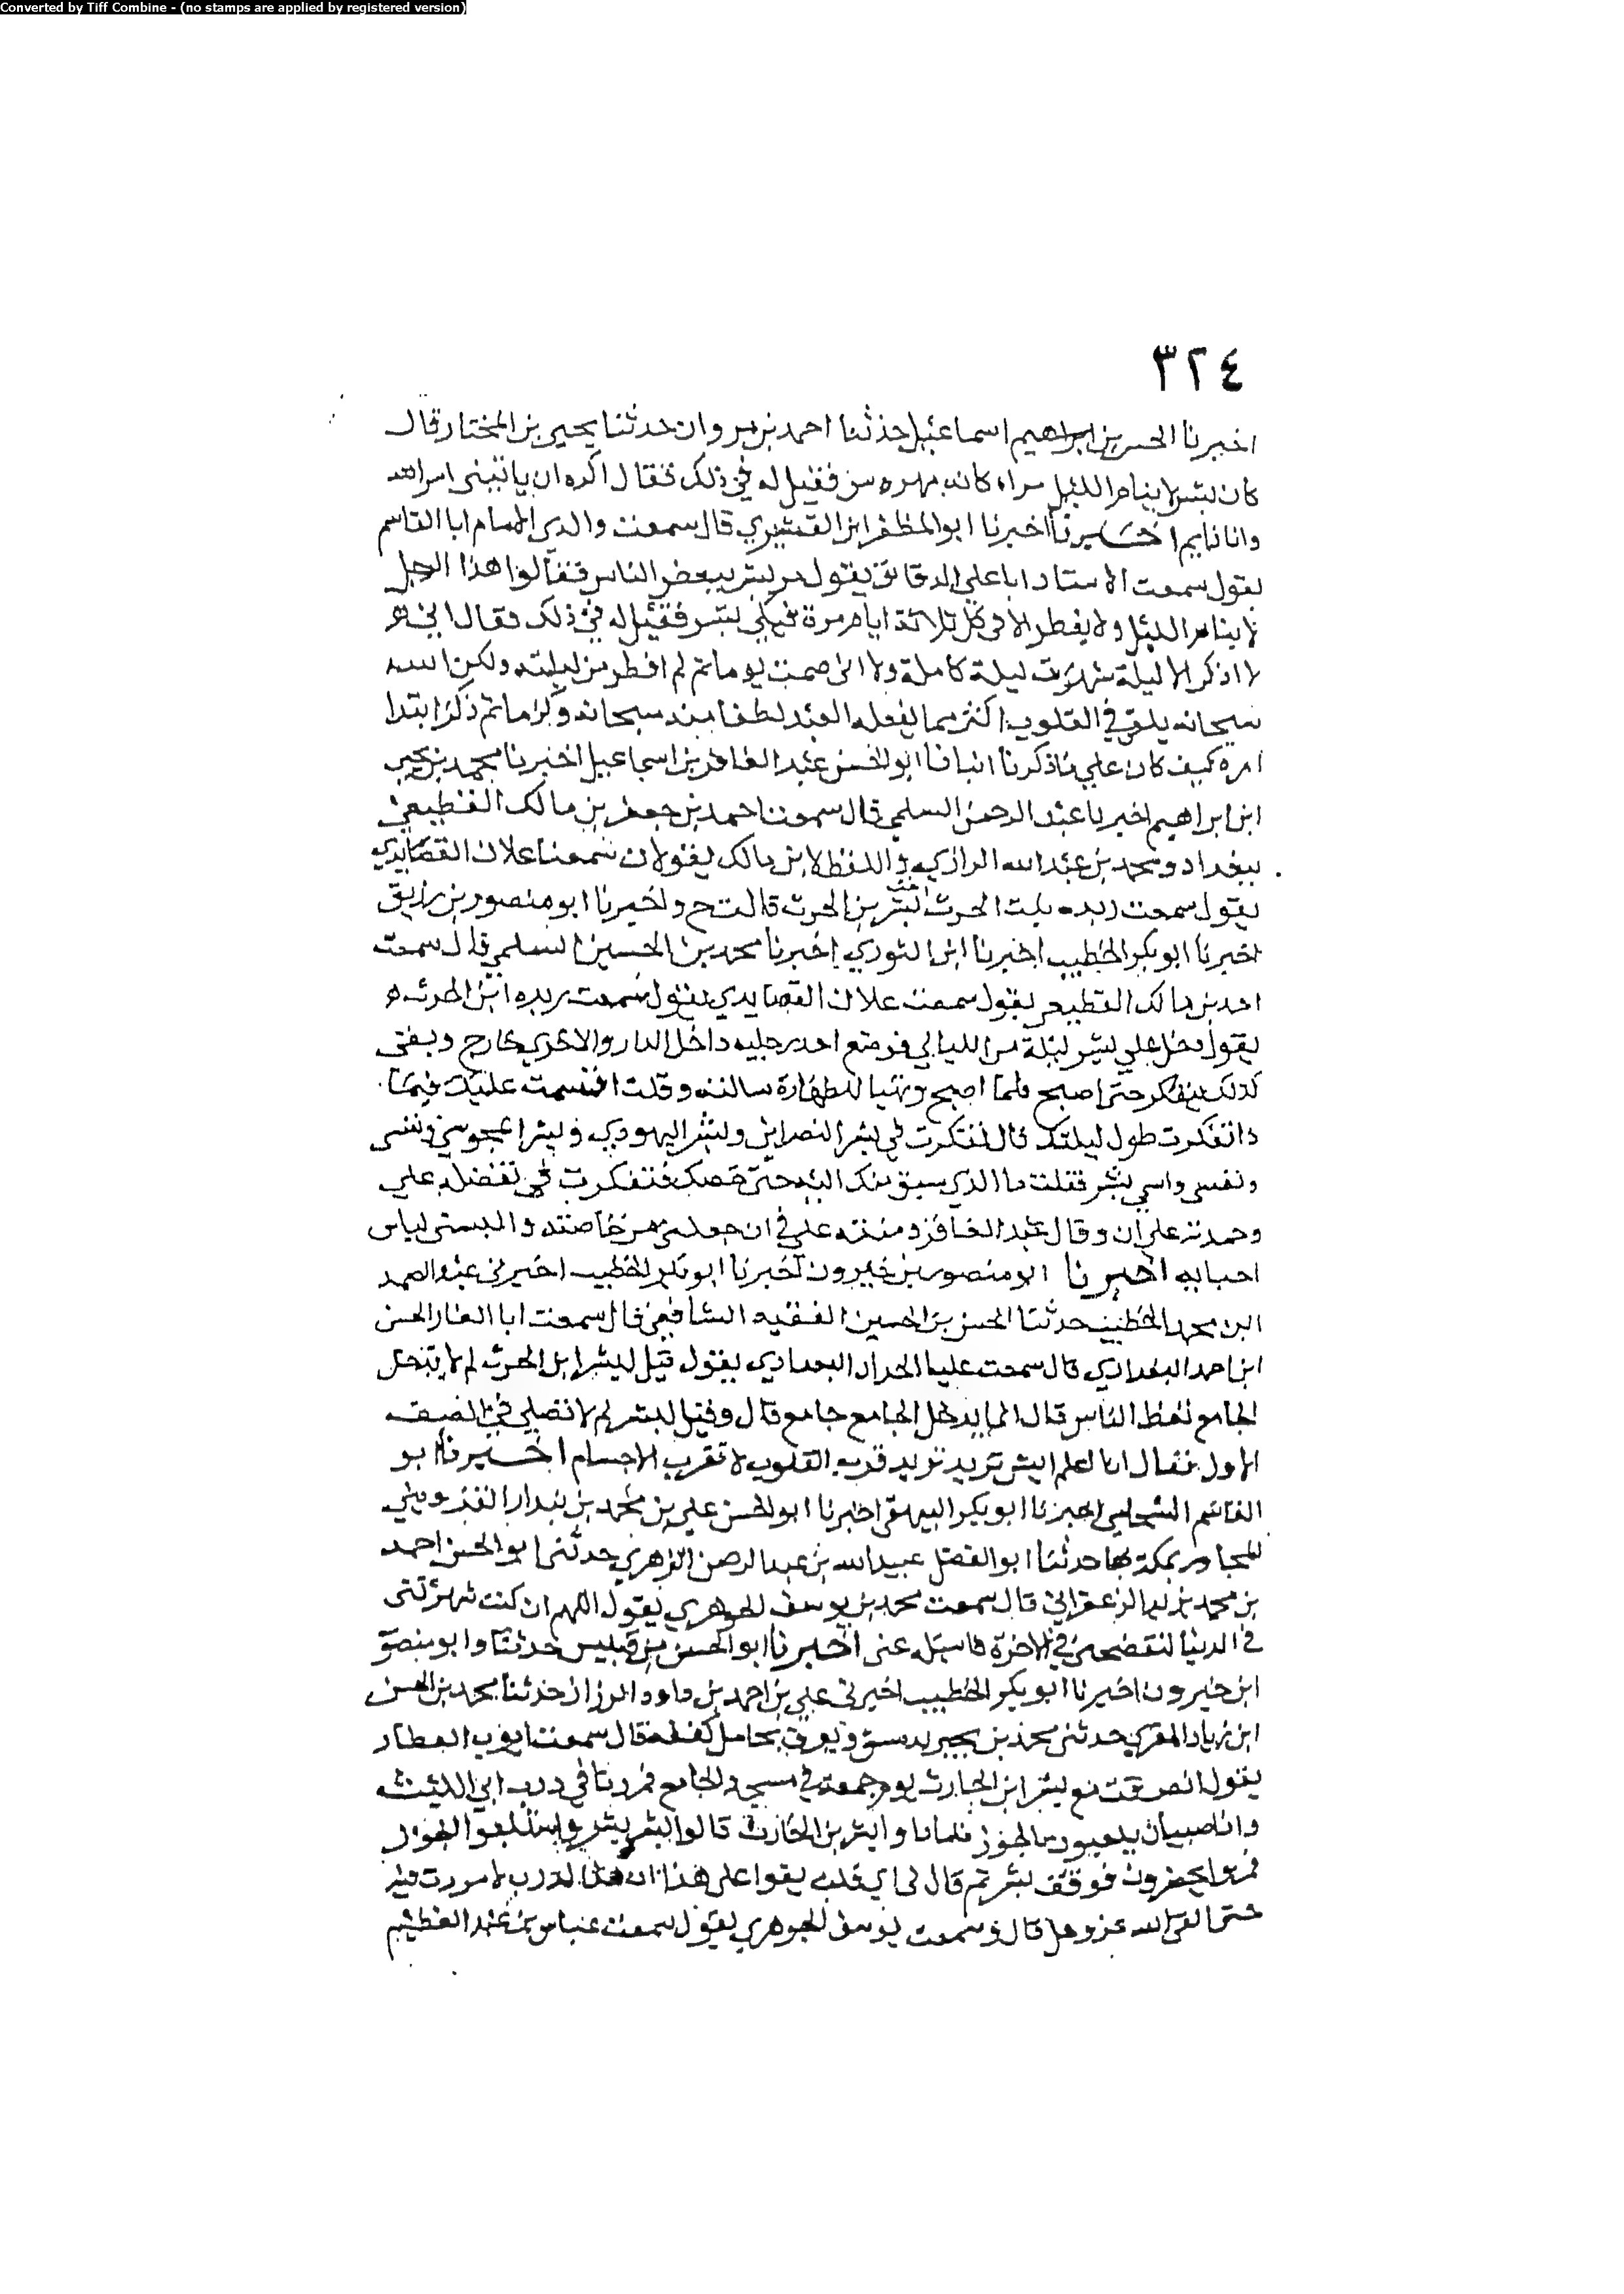 Converted by Tiff Combine - (no stamps are applied by registered version)
٣٢٤
اخبرنا الحسن بن ابراهيم اسماعيل حدثنا احمد بن مروان حدثنا يحيى بن المختار قال
كان بشر لا ينام الليل فقيل له في ذلك فقال اكره ان ياتيني امر الله
وانا نايم اخبرنا اخبرنا ابو المظفر ابن القشيري قال سمعت والدي الامام ابا القاسم
يقول سمعت الاستاد ابا علي الدقاق يقول مر بشر ببعض الناس فقالوا هذا الرجل
لا ينام الليل ولا يفطر الا في كل ثلاثة ايام مرة فبكى بشر فقيل له في ذلك فقال اني
لا اذكر ليلة سهرت ليلة كاملة ولا اني صمت يوما ثم لم افطر من ليلته ولكن الله
سبحانه يلقي في القلوب اكثر مما يفعله العبد لطفا منه سبحانه وكرما ثم ذكر ابتدا
امره كيف كان علي ما ذكرنا انبانا ابو الحسن عبد الغافر بن اسماعيل اخبرنا محمد بن يحيى
ابن ابراهيم اخبرنا عبد الرحمن السلمي قال سمعت احمد بن جعفر بن مالك القطيعي
ببغداد ومحمد بن عبد الله الرازي واللفظ لابن مالك يقولان سمعنا علان القصايدي
يقول سمعت زبده بنت الحرث اخت بشر بن الحرث قالت ح واخبرنا ابو منصور بن زريق
اخبرنا ابو بكر الخطيب اخبرنا ابن الثوري اخبرنا محمد بن الحسين السلمي قال سمعت
احمد بن مالك القطيعي يقول سمعت علان القصايدي يقول سمعت زبده ابن الحرث
يقول دخل علي بشر ليلة من الليالي فوضع احد رجليه داخل الدار والاخري خارج وبقى
كذلك يتفكر حتى اصبح فلما اصبح وتهيا للطهارة سالته وقلت اقسمت عليك فيما
ذا تفكرت طول ليلتك قال تفكرت في بشر النصراني وبشر اليهودي وبشر المجوسي ونفسى
ونفسى واسمي بشر فقلت ما الذي سبق منك اليه حتى خصك فتفكرت في تفضله علي
وحمدته على ان وقال عبد الغافر ومننه علي في ان جعلني من خاصته والبسني لباس
احبابه اخبرنا ابو منصور بن خيرون اخبرنا ابو بكر الخطيب اخبرني عبد الصمد
ابن محمد الخطيب حدثنا الحسن بن الحسين الفقيه الشافعي قال سمعت ابا الحسن
ابن احمد البغدادي قال سمعت عليا البغدادي يقول قيل لبشر ابن الحرث لم لا تدخل
الجامع تعظ الناس قال انما يدخل الجامع جامع قال وقيل لبشر لم لا تصلي في الصف
الاول فقال انا اعلم ايش تريد تريد قرب القلوب لا تقرب الاجسام اخبرنا ابو
القاسم الشحامي اخبرنا ابو بكر البيهقي اخبرنا ابو الحسن علي بن محمد بن بندار القزويني
المجاور بمكة بها حدثنا ابو الفضل عبيد الله بن عبد الرحمن الزهري حدثني ابو الحسن احمد
بن محمد بن الزعفراني قال سمعت محمد بن يوسف الجوهري يقول اللهم ان كنت شهرتني
في الدنيا لتفضحني في الاخرة فاسلبه عني اخبرنا ابو الحسن بن قبيس حدثنا وابو منصور
ابن خيرون اخبرنا ابو بكر الخطيب اخبرني علي بن احمد بن داود الرزاز حدثنا محمد بن الحسن
ابن زياد المقري حدثني محمد بن يعرف بحامل كفنه قال سمعت ايوب العطار
يقول انصرفت مع بشر ابن الحارث يوم جمعة في مسجد الجامع فمررنا في درب ابي الليث
واذا صبيان يلعبون بالجوز فلما راوا بشر بن الحارث قالوا بشر بشر واستلبوا الجوز
فمروا يحضرون فوقف بشر ثم قال لي اي قلب يقوا على هذا ان هذا لدرب لا مررت فيه
حتى القى الله عز وجل قال وسمعت يوسف الجوهري يقول سمعت عباس بن عبد العظيم